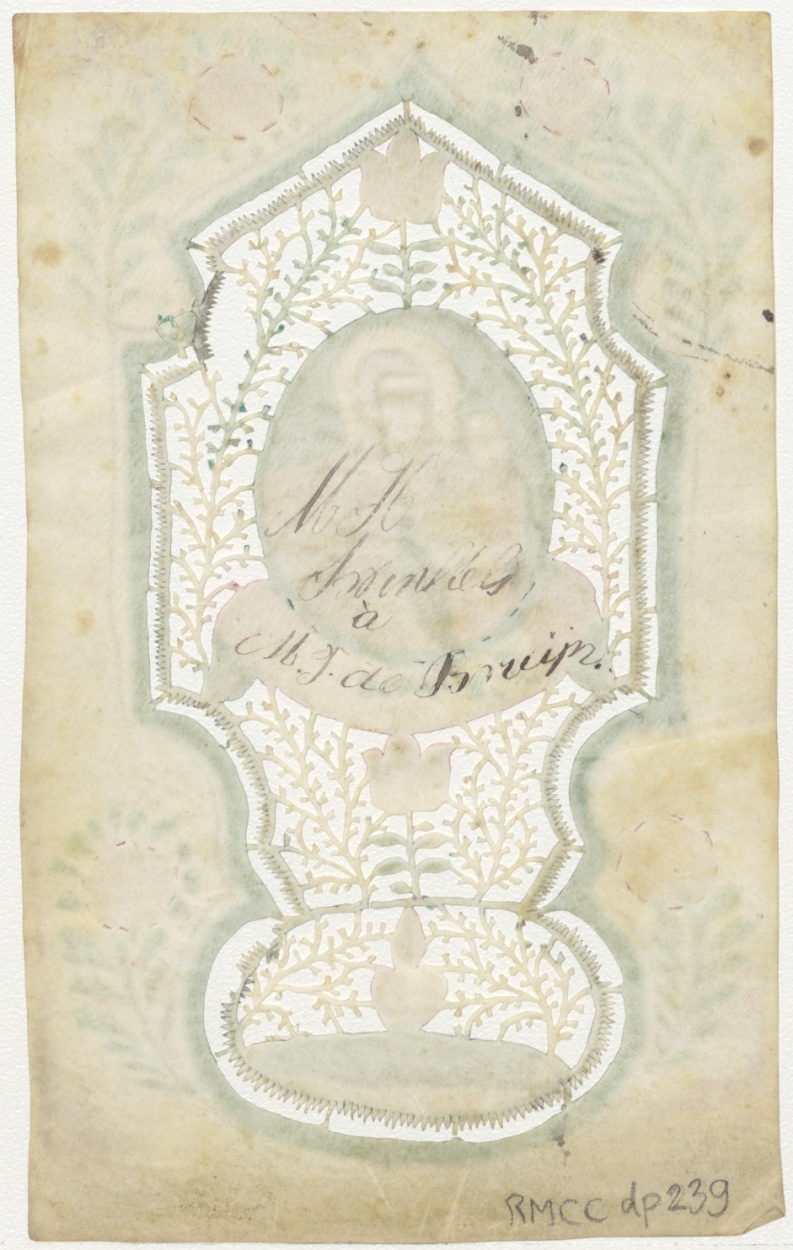 M H
à
M. J. de Bruijn.
RMCC dp239